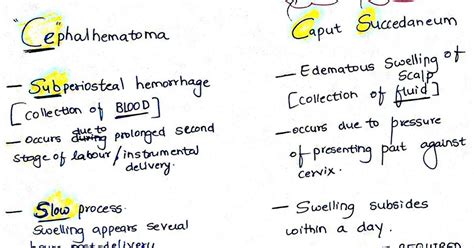 "Cephalhematoma
— Subperiosteal hemorrhage
[collection of BLOOD]
— occurs due to during prolonged second
stage of labour/instrumental
delivery.
— Slow process.
Swelling appears several
hours post-delivery
Caput Succedaneum
— Edematous Swelling of
Scalp
[collection of fluid]
— occurs due to pressure
of presenting part against
cervix.
— Swelling subsides
within a day.
REQUIRED